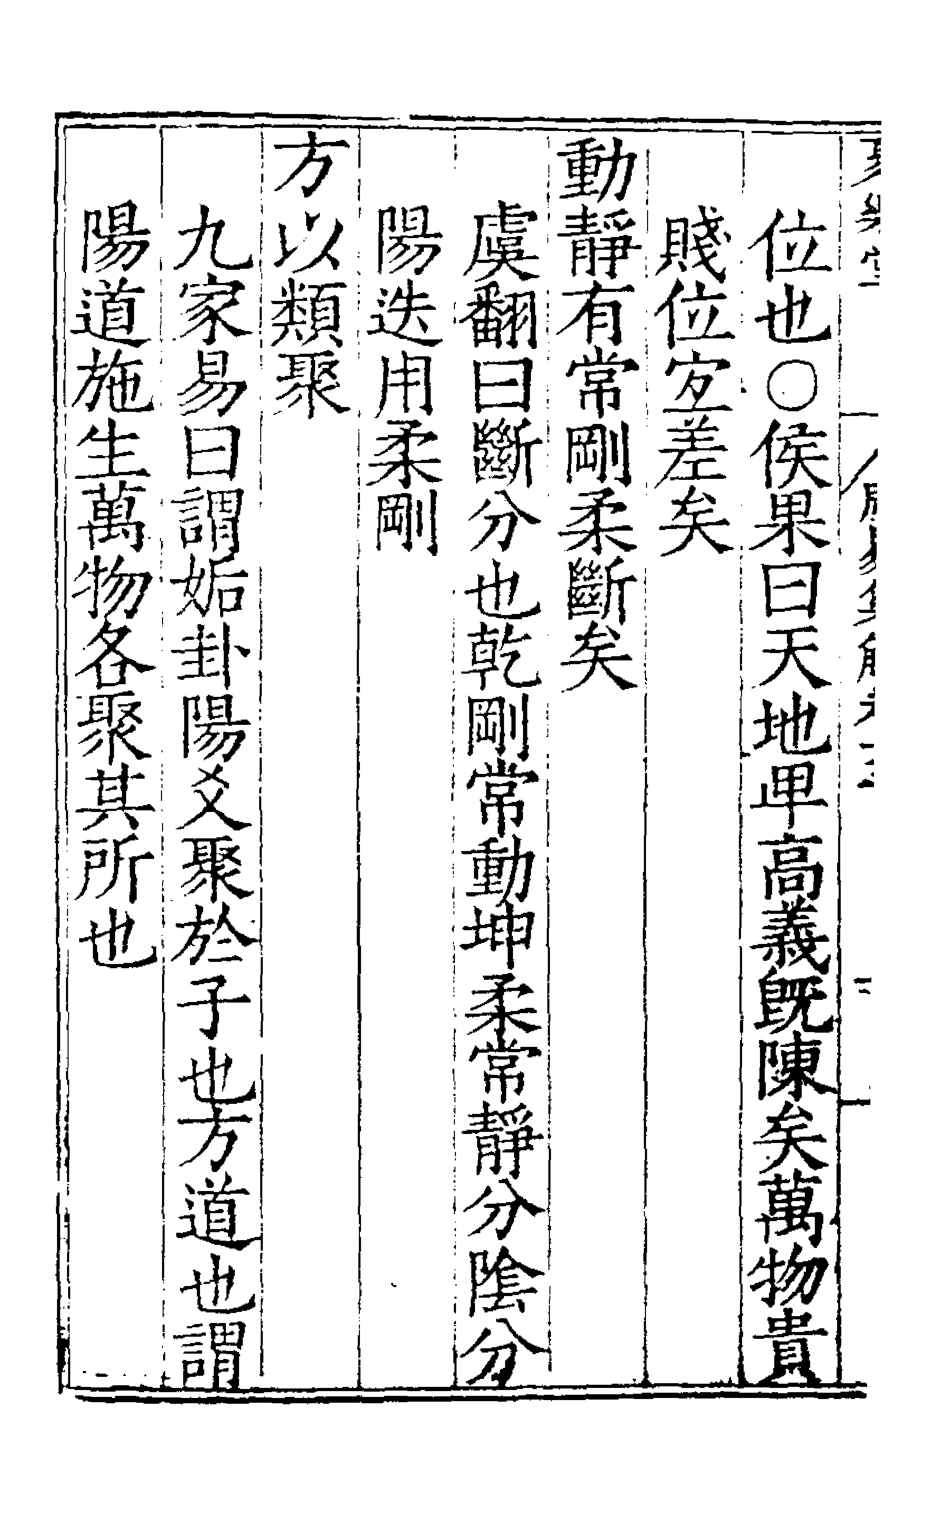 位也○侯果曰天地𤰞高義旣陳矣萬物貴
賤位宐差矣
動靜有常剛柔斷矣
虞翻曰斷分也乾剛常動坤柔常靜分陰分
陽迭用柔剛
方以類聚
九家易曰謂姤卦陽爻聚於子也方道也謂
陽道施生萬物各聚其所也